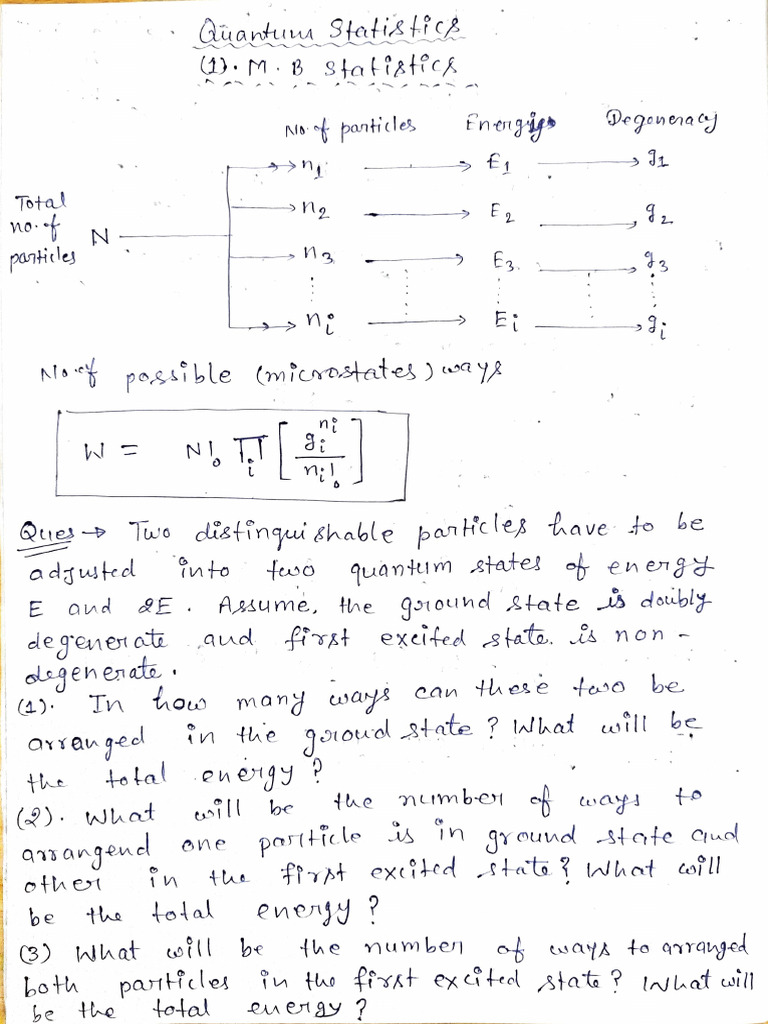 Quantum Statistics
(1). M. B Statistics
No. of particles Energies Degeneracy
n1 E1 g1
Total
no. of
particles N
n2 E2 g2
n3 E3 g3
ni Ei gi
No. of possible (microstates) ways
W = N! ∏i [ gi^ni / ni! ]
Ques → Two distinguishable particles have to be
adjusted into two quantum states of energy
E and 2E. Assume, the ground state is doubly
degenerate and first excited state. is non-
degenerate.
(1). In how many ways can these two be
arranged in the groud state? What will be
the total energy?
(2). What will be the number of ways to
arrangend one particle is in ground state and
other in the first excited state? What will
be the total energy?
(3) What will be the number of ways to arranged
both particles in the first excited state? What will
be the total energy?